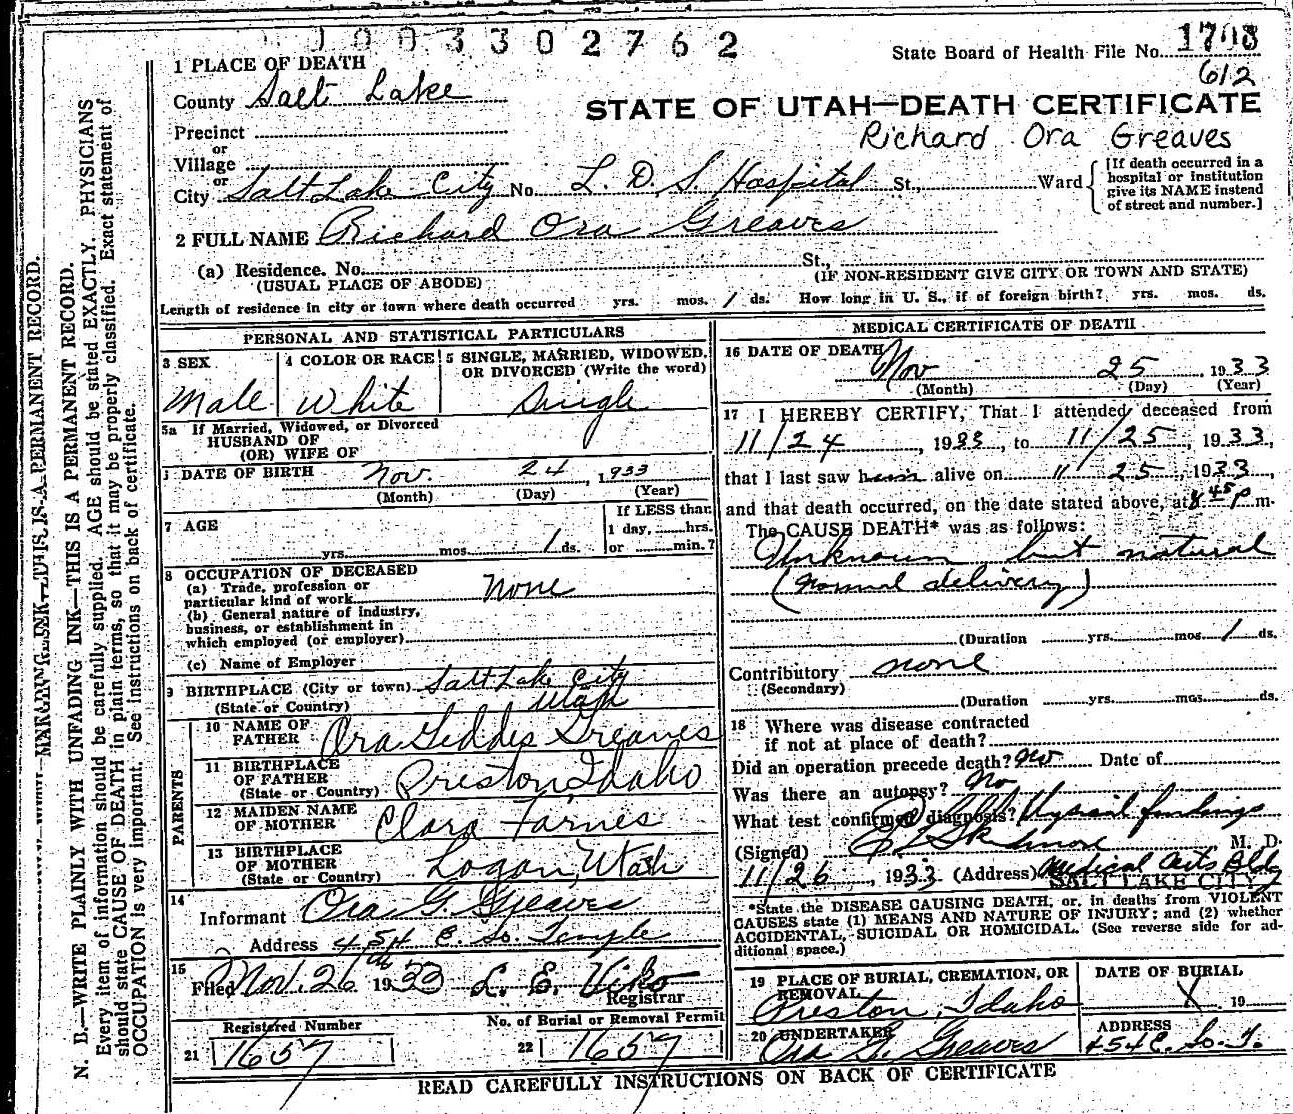 003302762
State Board of Health File No. 1708
612
1 PLACE OF DEATH
County Salt Lake
STATE OF UTAH—DEATH CERTIFICATE
Precinct
Richard Ora Greaves
or
Village
or
City Salt Lake City No. L. D. S. Hospital St., Ward
[If death occurred in a
hospital or institution
give its NAME instead
of street and number.]
2 FULL NAME Richard Ora Greaves
(a) Residence. No. St.,
(USUAL PLACE OF ABODE) (IF NON-RESIDENT GIVE CITY OR TOWN AND STATE)
Length of residence in city or town where death occurred yrs. mos. 1 ds. How long in U. S., if of foreign birth? yrs. mos. ds.
PERSONAL AND STATISTICAL PARTICULARS
3 SEX
Male
4 COLOR OR RACE
White
5 SINGLE, MARRIED, WIDOWED,
OR DIVORCED (Write the word)
Single
5a If Married, Widowed, or Divorced
HUSBAND OF
(OR) WIFE OF
DATE OF BIRTH Nov. 24, 1933
(Month) (Day) (Year)
7 AGE
yrs. mos. 1 ds.
If LESS than
1 day, hrs.
or min.?
8 OCCUPATION OF DECEASED
(a) Trade, profession or
particular kind of work None
(b) General nature of Industry,
business, or establishment in
which employed (or employer)
(c) Name of Employer
9 BIRTHPLACE (City or town) Salt Lake City
(State or Country) Utah
PARENTS
10 NAME OF
FATHER Ora Geddes Greaves
11 BIRTHPLACE
OF FATHER
(State or Country) Preston, Idaho
12 MAIDEN NAME
OF MOTHER Clara Farnes
13 BIRTHPLACE
OF MOTHER
(State or Country) Logan, Utah
14
Informant Ora G. Greaves
Address 454 E. So. Temple
15
Filed Nov. 26th 1933 L. E. Viko
Registrar
21 Registered Number
1657
22 No. of Burial or Removal Permit
1657
MEDICAL CERTIFICATE OF DEATH
16 DATE OF DEATH
Nov 25 1933
(Month) (Day) (Year)
17 I HEREBY CERTIFY, That I attended deceased from
11/24, 1933, to 11/25, 1933,
that I last saw him alive on 11 25, 1933,
and that death occurred, on the date stated above, at 8 45 P. m.
The CAUSE DEATH* was as follows:
Unknown but natural
(normal delivery)
(Duration yrs. mos. 1 ds.
Contributory none
(Secondary)
(Duration yrs. mos. ds.
18 Where was disease contracted
if not at place of death?
Did an operation precede death? no Date of
Was there an autopsy? No
What test confirmed diagnosis? Physical findings
(Signed) Skidmore M. D.
11/26, 1933 (Address) Medical Arts Bldg
SALT LAKE CITY
*State the DISEASE CAUSING DEATH, or, in deaths from VIOLENT
CAUSES state (1) MEANS AND NATURE OF INJURY; and (2) whether
ACCIDENTAL, SUICIDAL OR HOMICIDAL. (See reverse side for ad-
ditional space.)
19 PLACE OF BURIAL, CREMATION, OR
REMOVAL
Preston, Idaho
DATE OF BURIAL
X 19
20 UNDERTAKER
Ora G. Greaves
ADDRESS
454 E. So. T.
READ CAREFULLY INSTRUCTIONS ON BACK OF CERTIFICATE
N. B.—WRITE PLAINLY WITH UNFADING INK—THIS IS A PERMANENT RECORD.
Every item of information should be carefully supplied. AGE should be stated EXACTLY. PHYSICIANS
should state CAUSE OF DEATH in plain terms, so that it may be properly classified. Exact statement of
OCCUPATION is very important. See instructions on back of certificate.
THIS IS A PERMANENT RECORD.